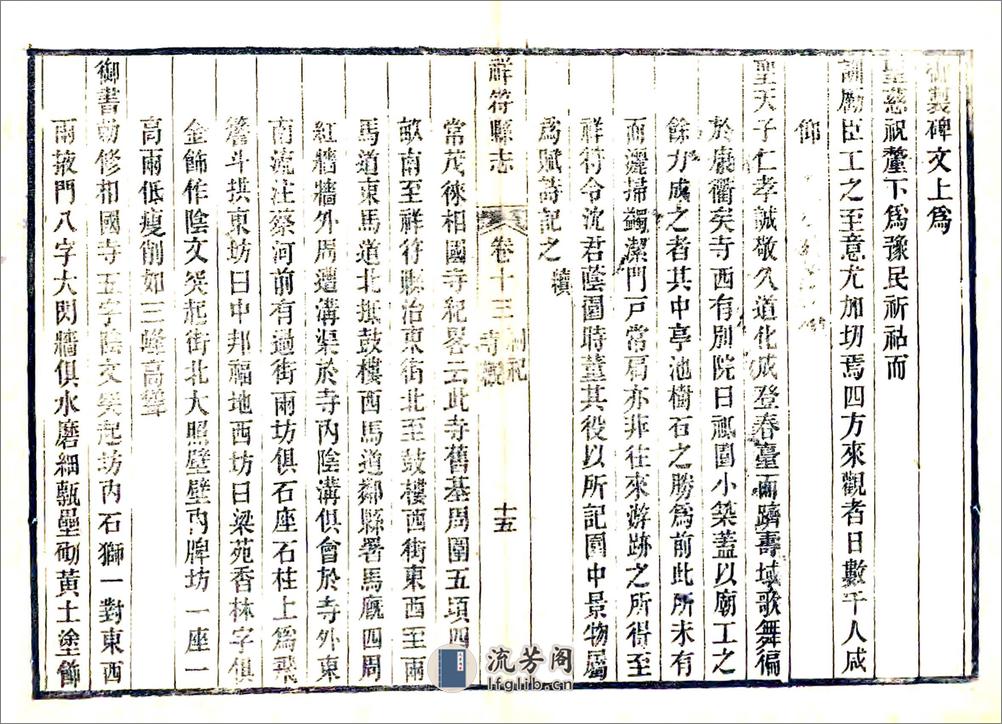 御製碑文上爲
聖慈祝釐下爲豫民祈祜而
訓勵臣工之至意尤加切焉四方來觀者日數千人咸
仰
聖天子仁孝誠敬久道化成登春臺而躋壽域歌舞徧
於康衢矣寺西有別院曰祗園小築蓋以廟工之
餘力成之者其中亭池樹石之勝爲前此所未有
而灑掃蠲潔門戸常扃亦非往來遊跡之所得至
祥符令沈君蔭園時董其役以所記園中景物屬
爲賦詩記之
祥符縣志
卷十三
祠祀
寺觀
十五
常茂徠相國寺紀畧云此寺舊基周圍五頃四
畝南至祥符縣治東街北至鼓樓西街東西至兩
馬道東馬道北抵鼓樓西馬道鄰縣署馬廐四周
紅牆牆外周遭溝渠於寺內陰溝俱會於寺外東
南流注蔡河前有過街兩坊俱石座石柱上爲飛
簷斗拱東坊曰中邦福地西坊曰梁苑香林字俱
金飾作陰文突起街北大照壁壁內牌坊一座一
高兩低瘦削如三峰高聳
御書勅修相國寺五字陰文突起坊內石獅一對東西
兩掖門八字大閃牆俱水磨細甎壘砌黃土塗飾
流芳阁
lfglib.cn